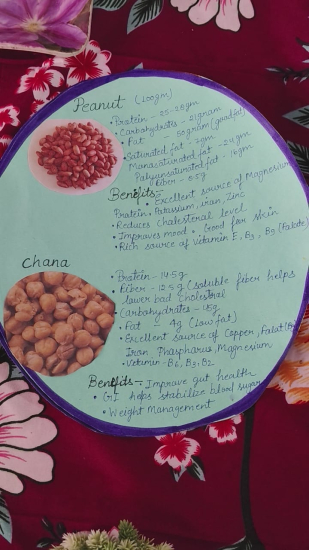 Peanut (100gm)
• Protein - 25-28gm
• Carbohydrates - 21gram
• Fat - 50gram (good fat)
Saturated fat - 7gm
Monosaturated fat - 24gm
Polyunsaturated fat - 16gm
Fiber - 8.5g
Benefits:-
• Excellent source of Magnesium
Protein, Potassium, iron, Zinc
• Reduces cholesteral level
• Improves mood • Good for skin
• Rich source of Vitamin E, B3, B9 (Folate)
Chana
• Protein - 14.5g
• Fiber - 12.5g (soluble fiber helps
lower bad cholestral
• Carbohydrates -
• Fat - 4g (low fat)
• Excellent source of Copper,
Iron Phospharus, Magnesium
• Vitamin - B6, B3, B2.
Benefits - Improve gut health
• GI helps stabilize blood sugar
• Weight Management